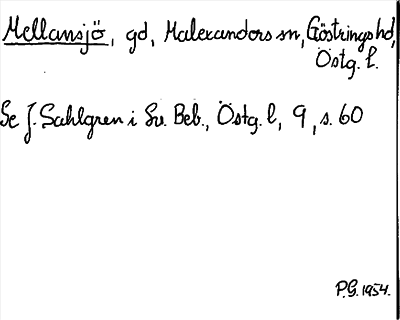 Mellansjö, gd, Malexanders sn, Göstrings hd,
Östg. l.
Se J. Sahlgren i Sv. Beb., Östg. l, 9, s. 60
P.G. 1954.